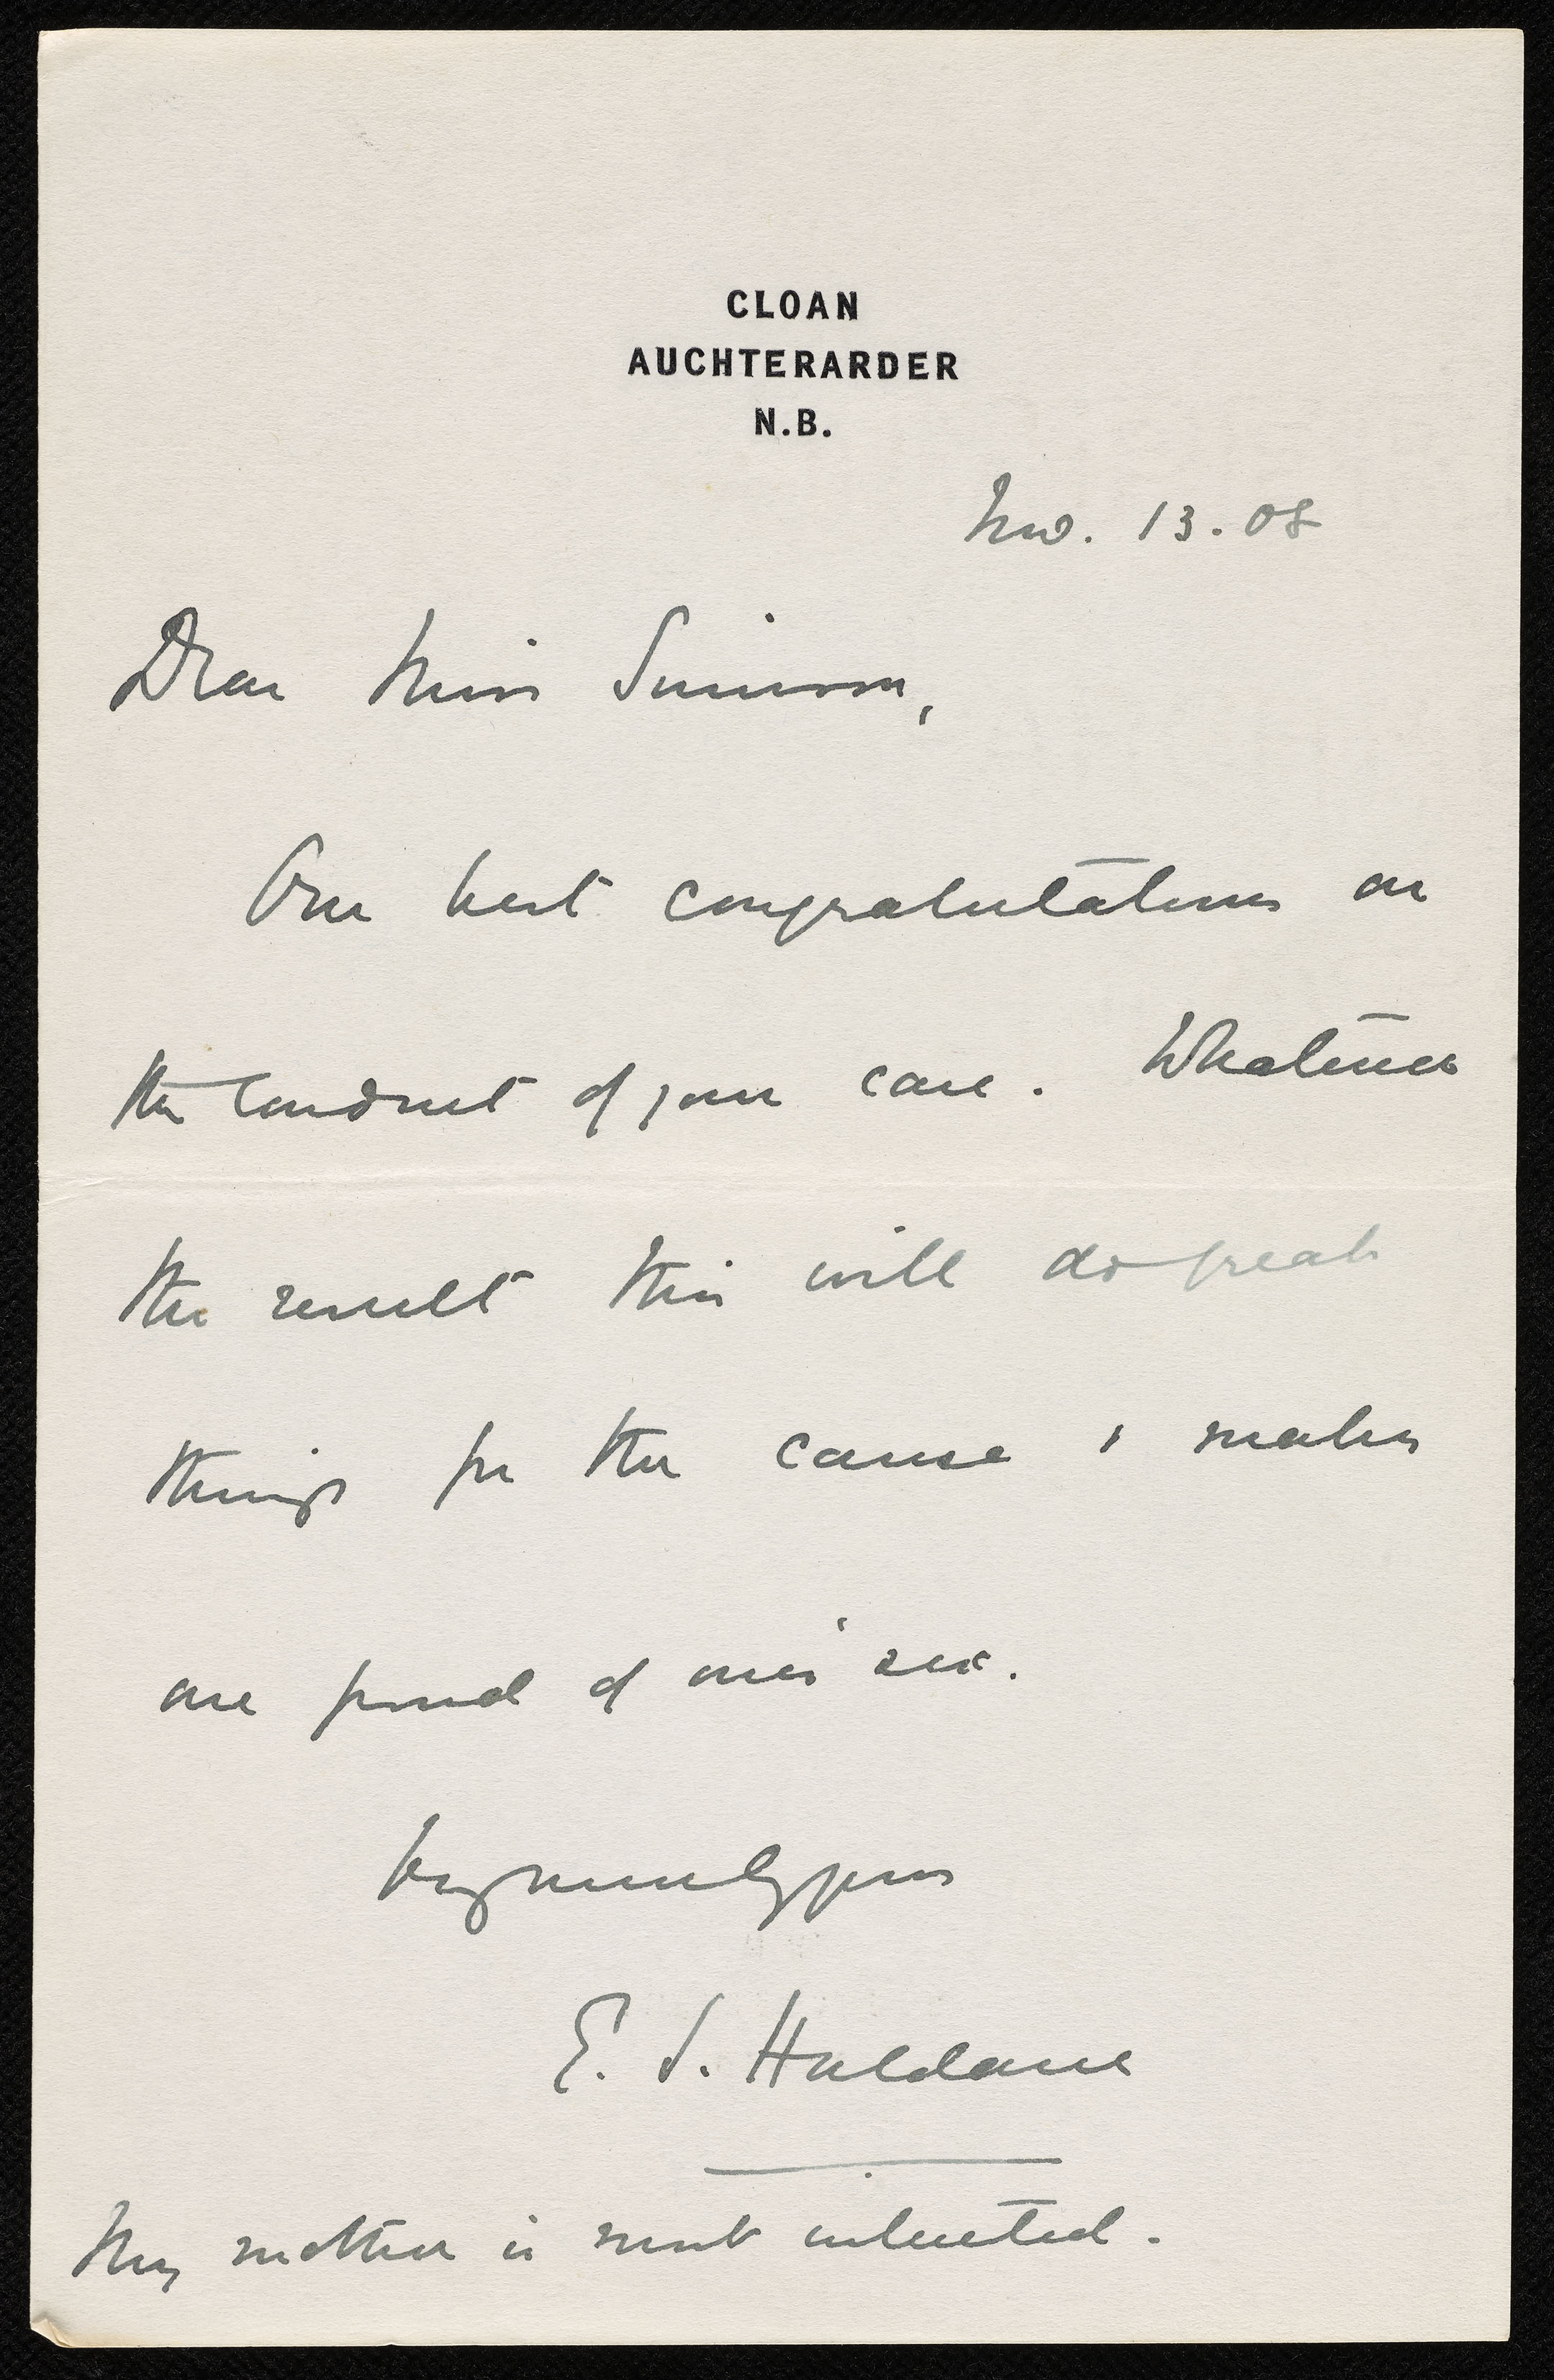 CLOAN
AUCHTERARDER
N.B.
Nov. 13. 08
Dear Miss Simson,
Our best congratulations on
the conduct of your case. Whatever
the result this will do great
things for the cause & makes
one proud of one's sex.
Very sincerely yours
E. S. Haldane
My mother is most interested.